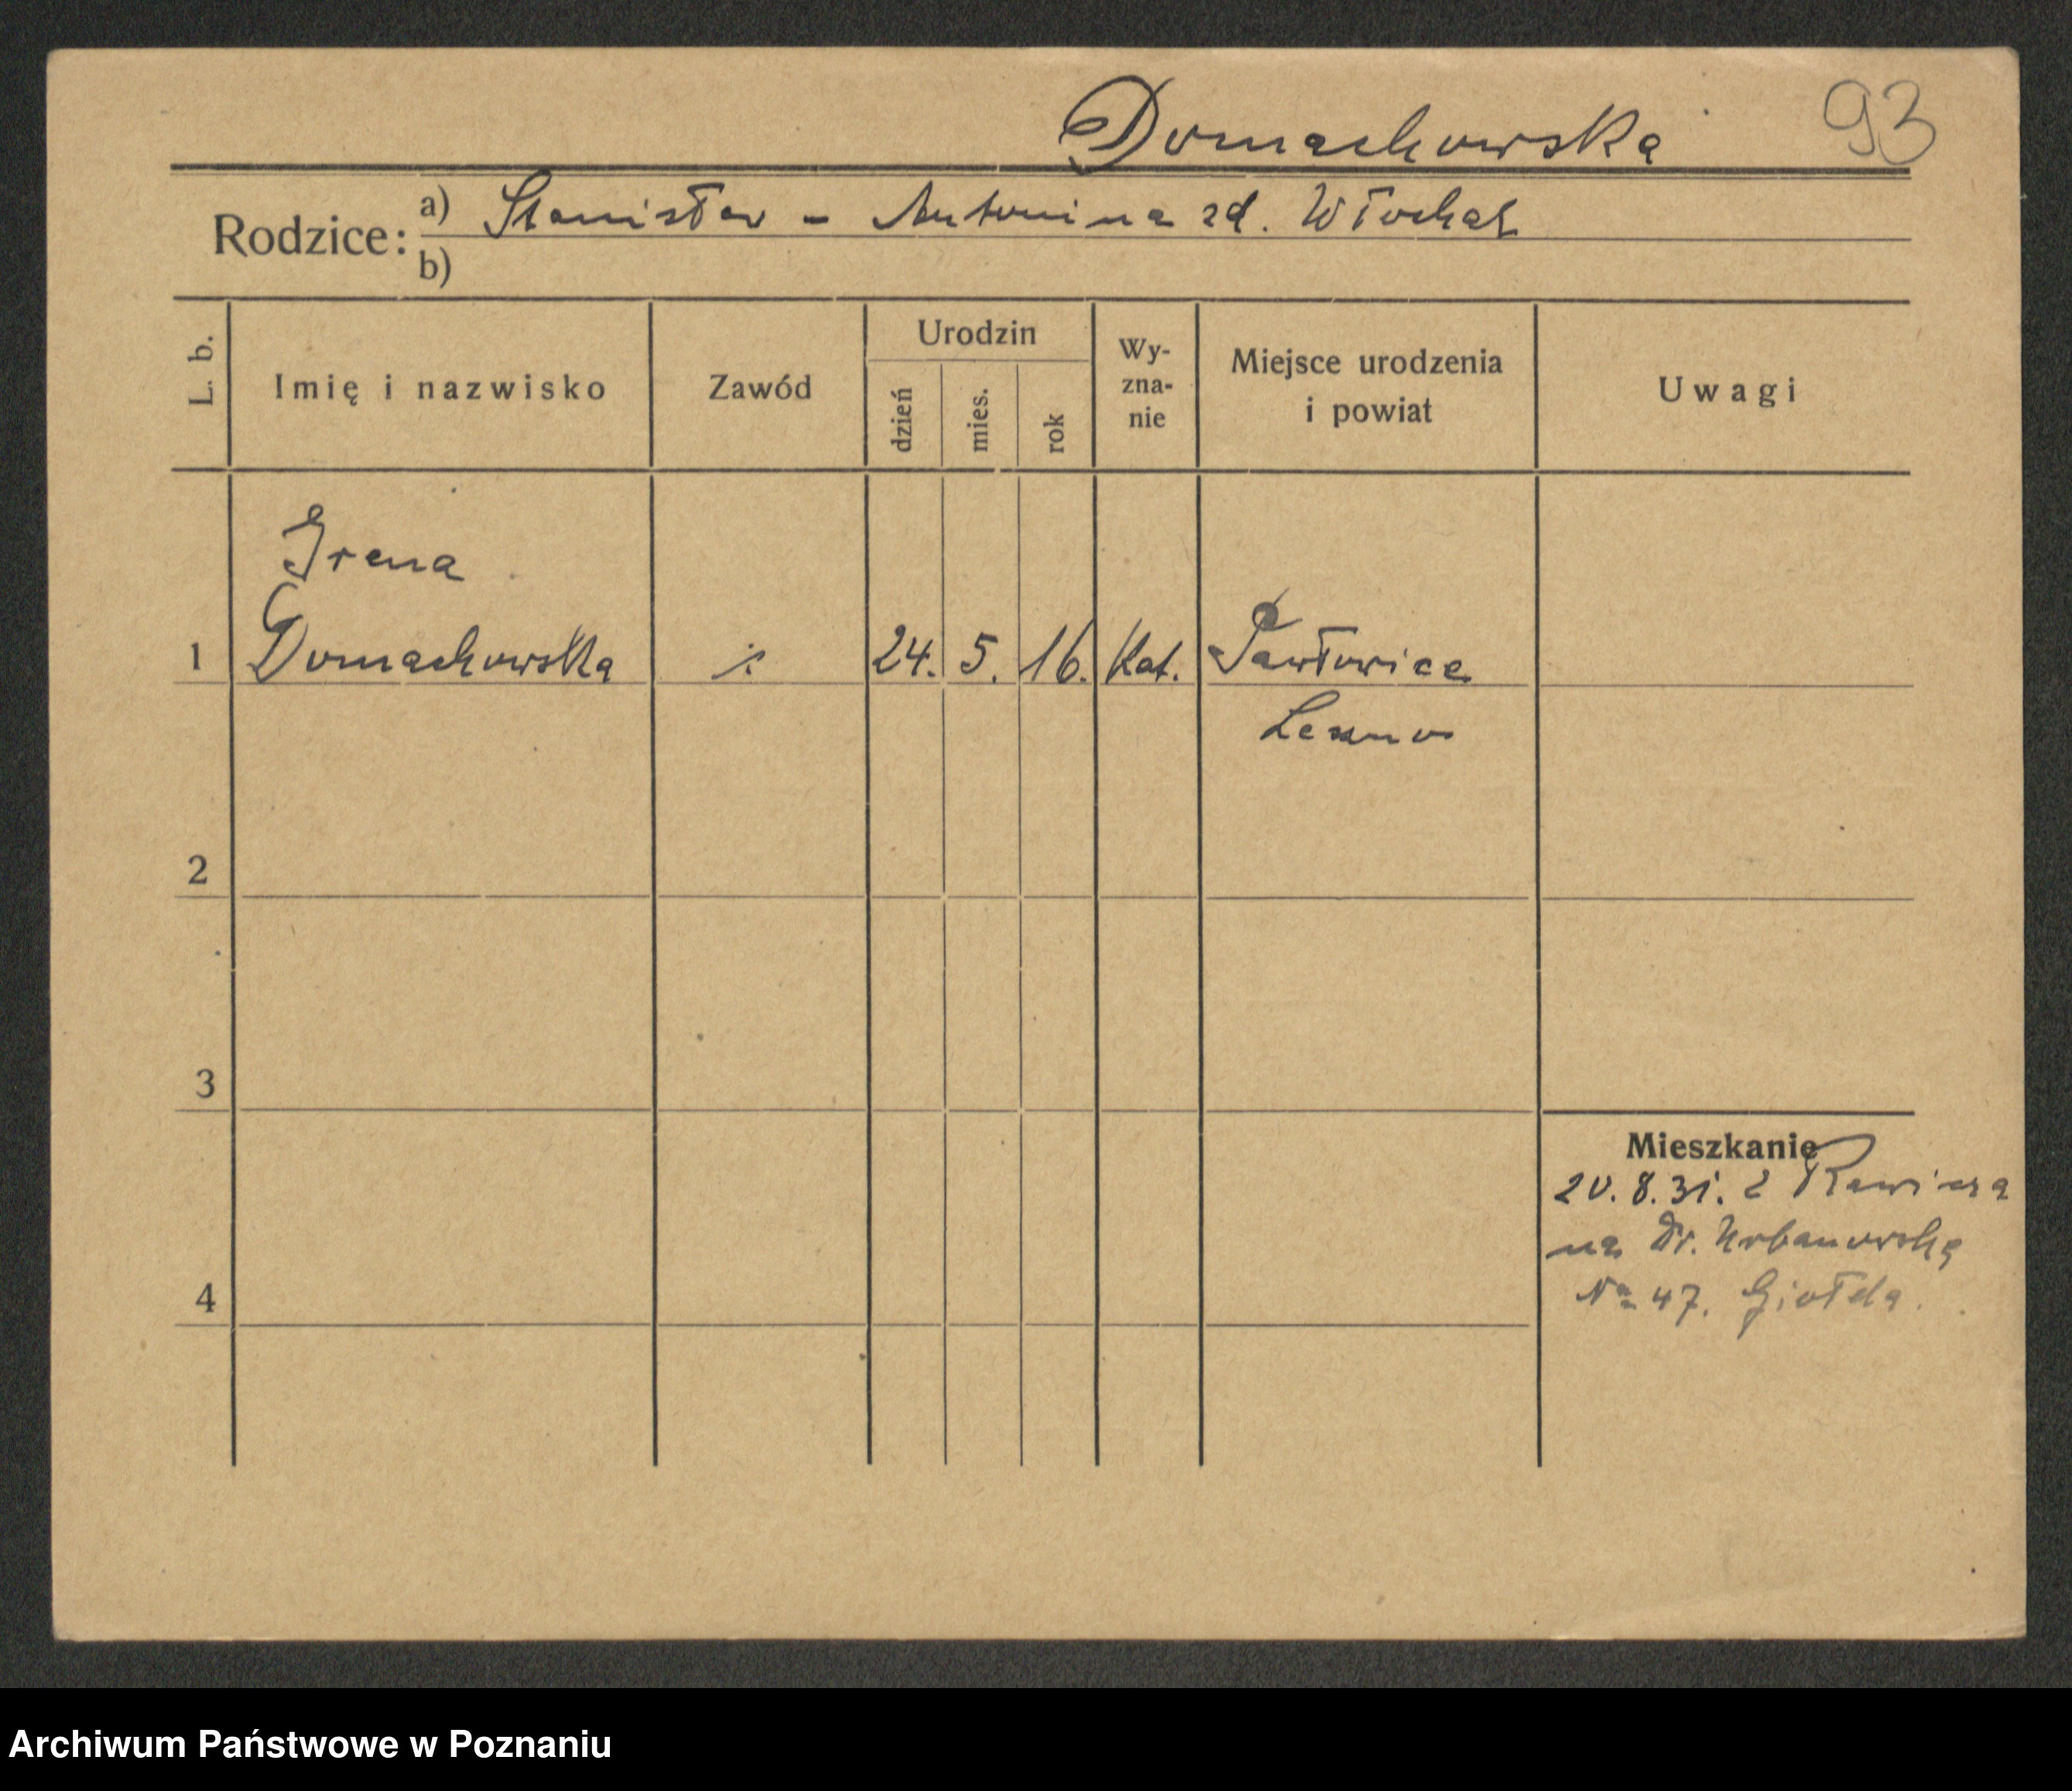 Domachowska 93
Rodzice: a) Stanisław - Antonina zd. Włochal
b)
L. b. Imię i nazwisko Zawód Urodzin dzień mies. rok Wy-zna-nie Miejsce urodzenia i powiat Uwagi
Irena
1 Domachowska 24. 5. 16. Kat. Pawłowice
Leszno
2
3
Mieszkanie
20.8.31. z Rawicza
na Dr. Urbanowską
4 No 47.
Archiwum Państwowe w Poznaniu